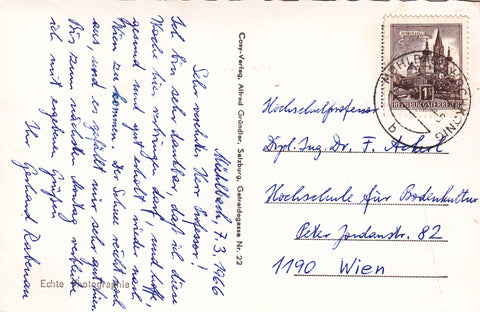 Mühlbach, 7.3.1966
Sehr verehrter Herr Professor!
Ich bin sehr dankbar, daß ich diese
Woche hier verbringen darf, und hoffe,
gesund und gut erholt wieder nach
Wien zu kommen. Der Schnee reicht noch
aus, und es gefällt mir sehr gut hier.
Bis zum nächsten Montag verbleibe
ich mit ergebenen Grüßen
Ihr Gerhard
Cosy-Verlag, Alfred Gründler, Salzburg, Getreidegasse Nr. 22
Echte Photographie
1S
REPUBLIK ÖSTERREICH
AM HOCHKÖNIG
b
Hochschulprofessor
Dipl. Ing. Dr. F. Ackerl
Hochschule für Bodenkultur
Peter Jordanstr. 82
1190 Wien